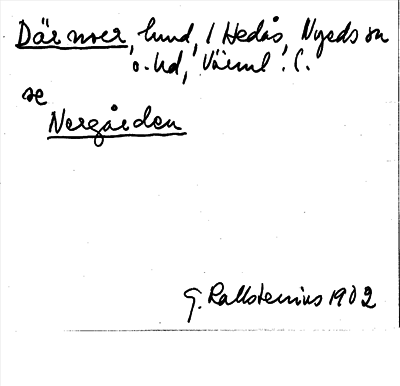 Där nver, hmd, 1 Hedås, Nyeds sn
o. hd, Värml. l.
se
Nergården
G. Kallstenius 1902